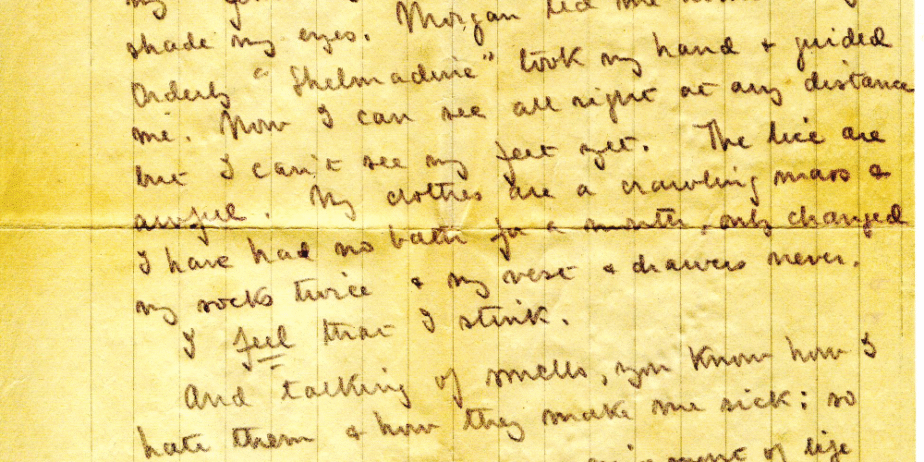 my
shade my eyes. Morgan led me
Orderly "Shelmadine" took my hand & guided
me. Now I can see all right at any distance
but I can't see my feet yet. The lice are
awful. My clothes are a crawling mass &
I have had no bath for a month, only changed
my socks twice & my vest & drawers never.
I feel that I stink.
And talking of smells, you know how I
hate them & how they make me sick; so
of life